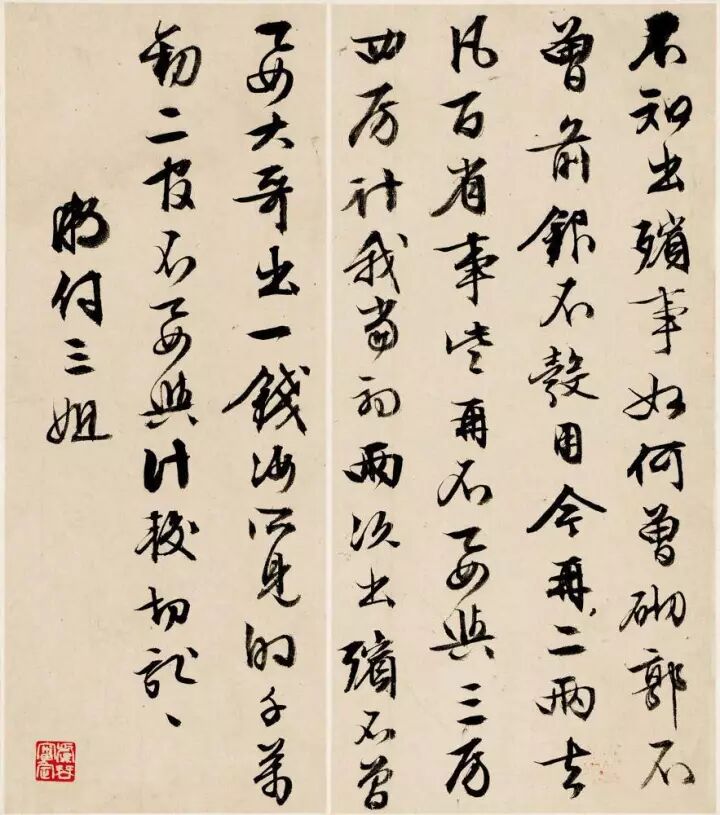 不知出殯事如何曾砌郭不
曾前銀不彀用今再二兩去
凡百省事些再不要與三房
四房計我當初兩次出殯不曾
要大哥出一錢汝所見的千萬
勸二官不要與計較切記、、
徵明付三姐
虛齋審定